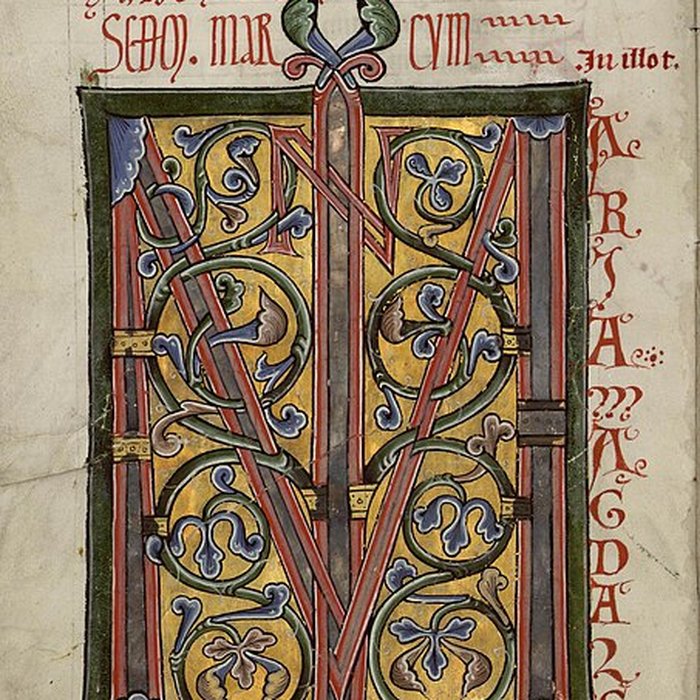 SCDM. MAR CVM
.In illot.
M
A
R
I
A
M
A
G
D
A